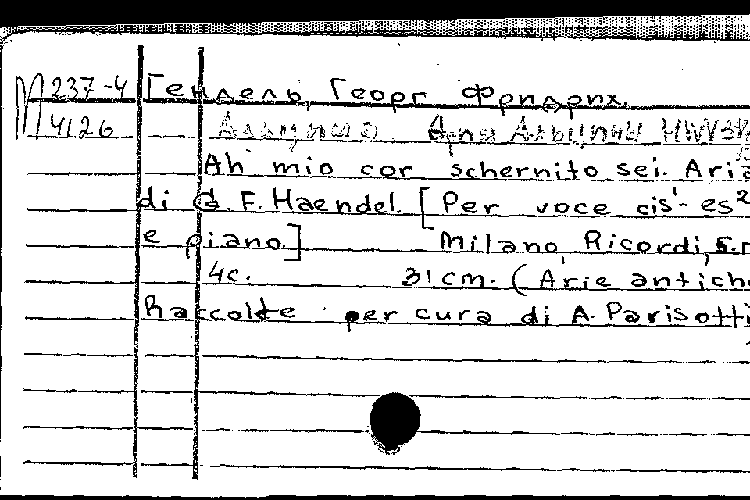 М 237-4 Гендель, Георг Фридрих.
4126 Альцина. Ария Альцины
Ah mio cor schernito sei. Aria
di G. F. Haendel. [Per voce cis¹- es²
e piano.] Milano, Ricordi, s.
4c. 31 cm. (Arie antiche
Raccolte per cura di A. Parisotti